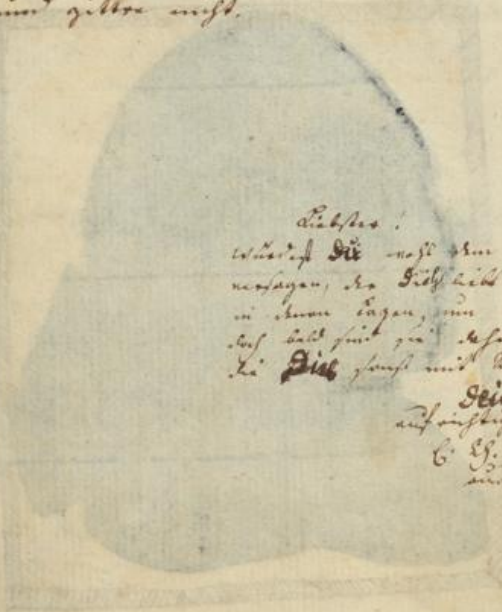 und zittre nicht.
Liebster!
würdest Du wohl dem
versagen, der Dich liebt
in denen Tagen, um
doch bald sind sie dahin
die Dir sonst mit
dei
aufrichtig
C. Ch.
aus